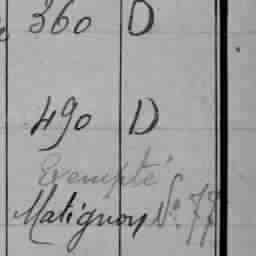 360 D
490 D
Exempté
Matignon N° 77